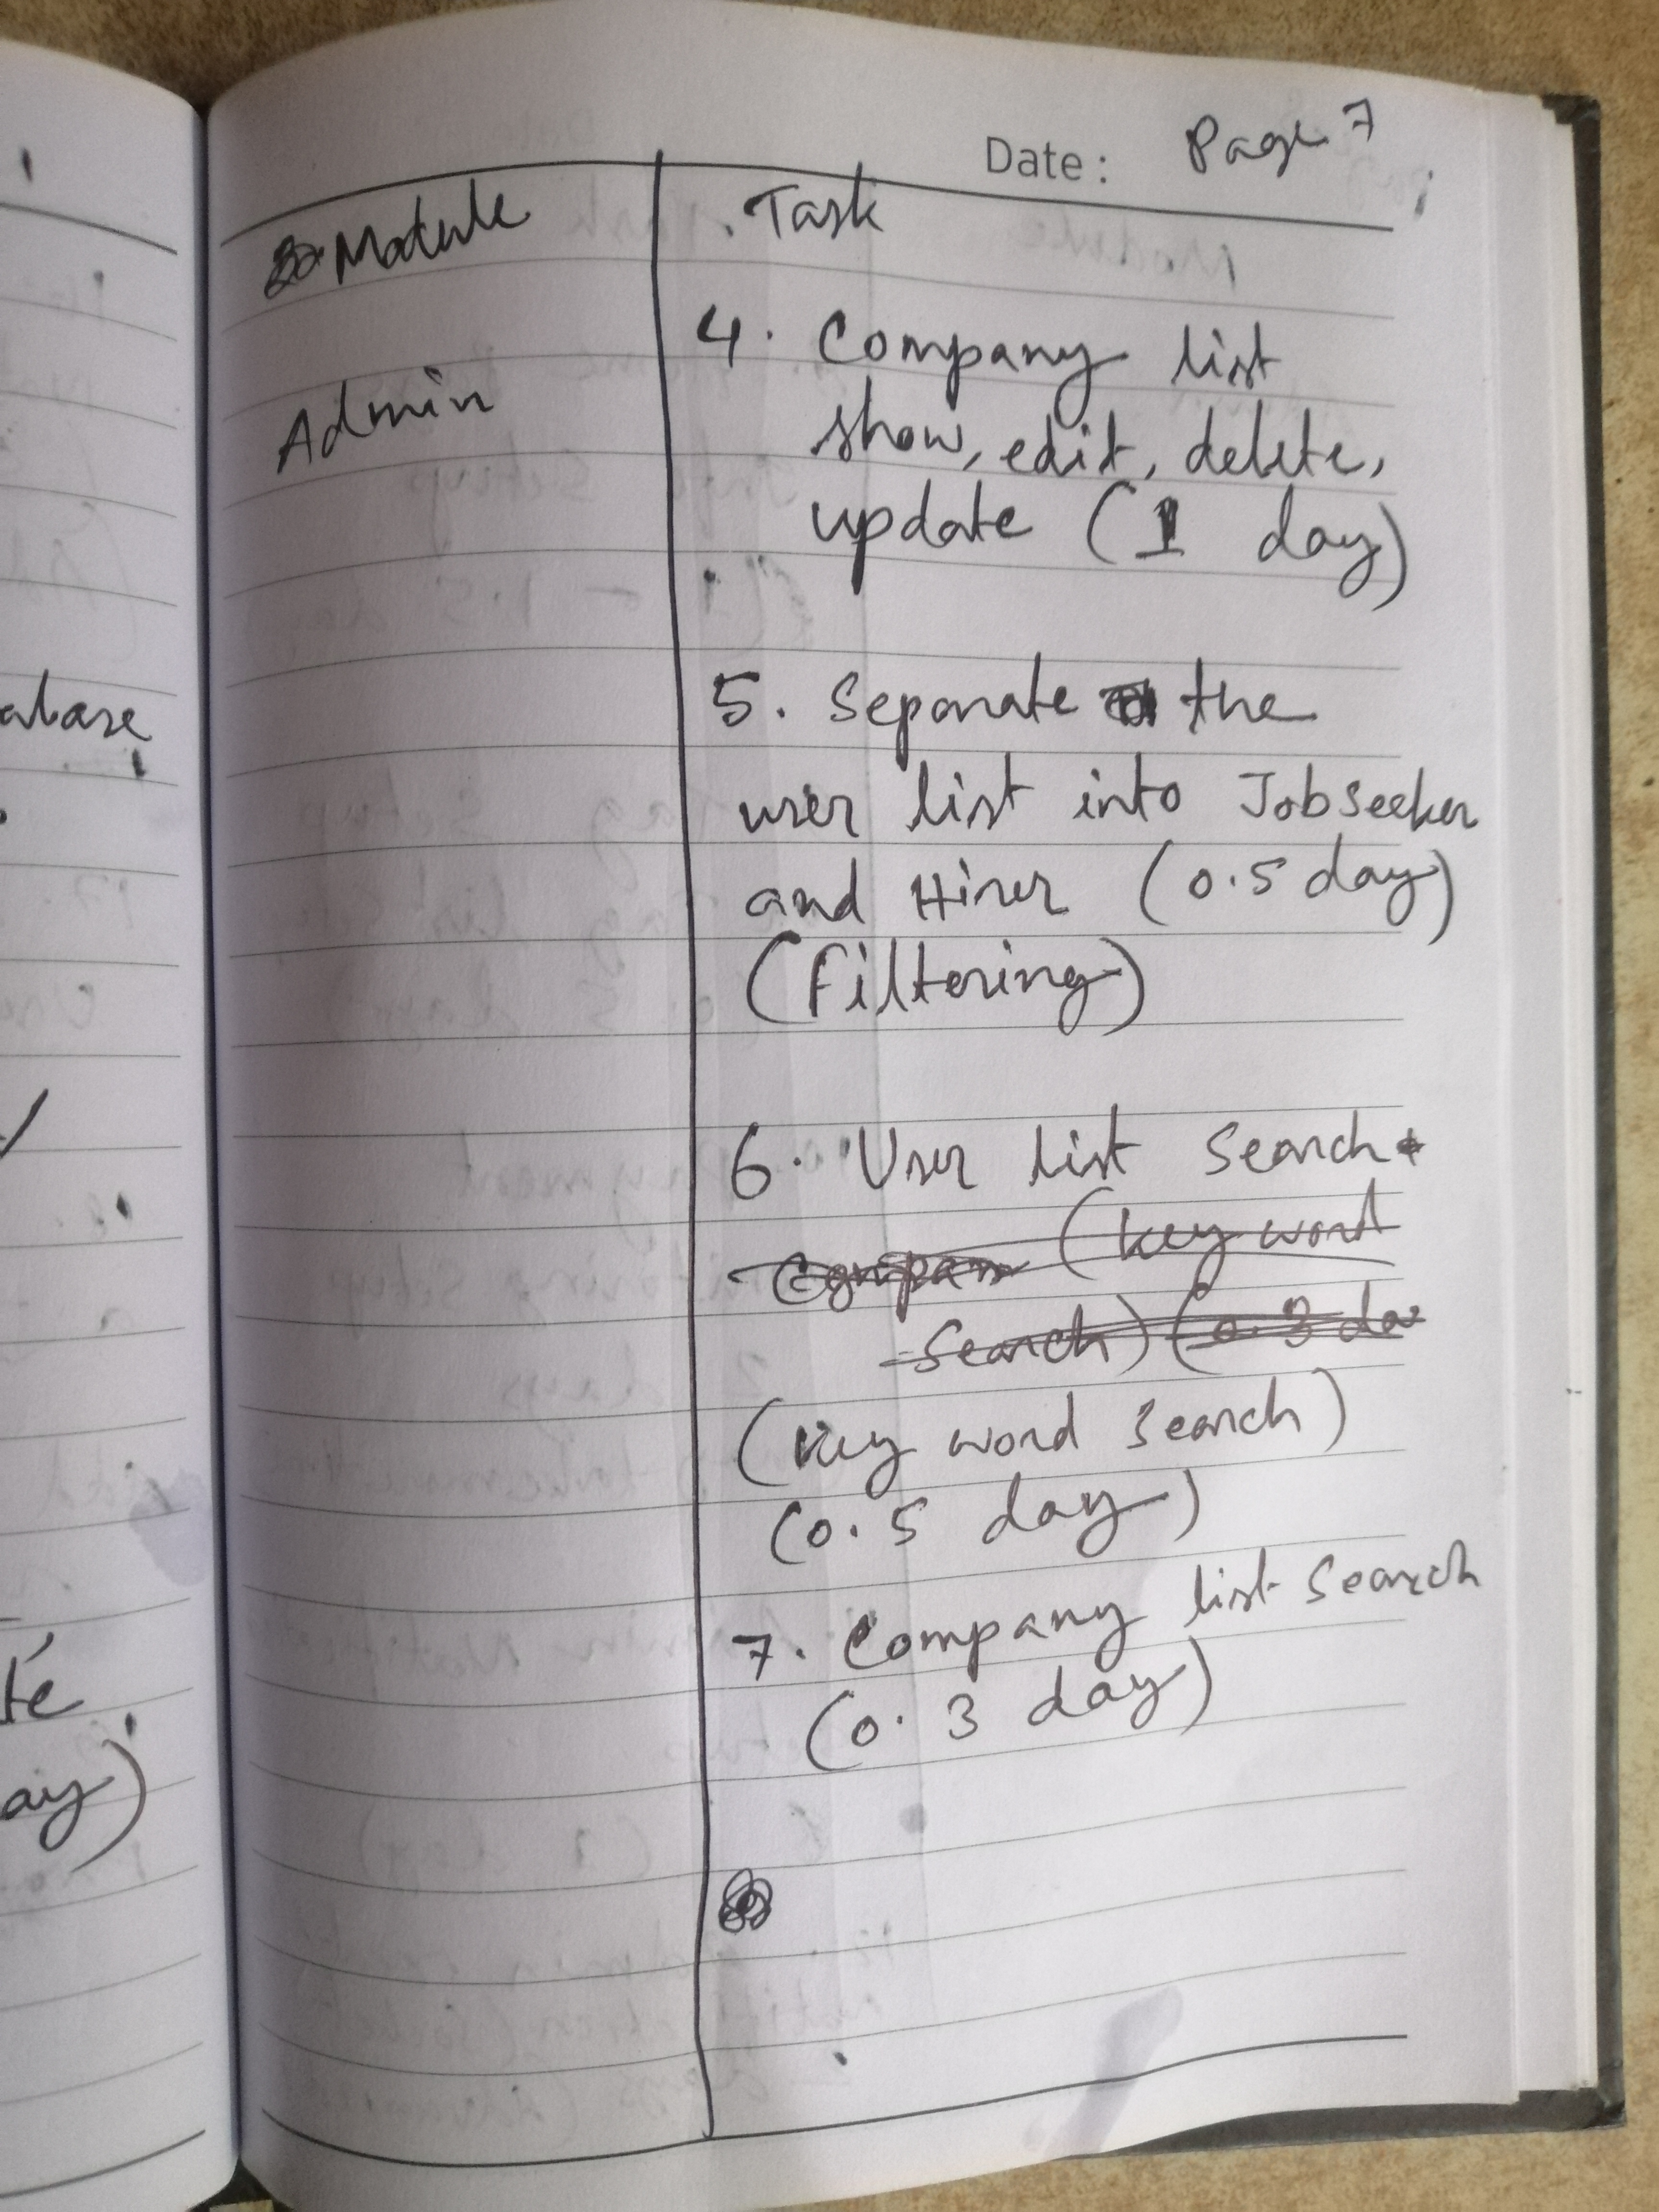 Date: Page 7
Module Task
Admin
4. Company list
show, edit, delete,
update (1 day)
5. Separate the
user list into Jobseeker
and Hirer (0.5 day)
(Filtering)
6. User list Search
(key word
Search) (0.3 da
(key word search)
(0.5 day)
7. Company list Search
(0.3 day)
abase
te
ay)